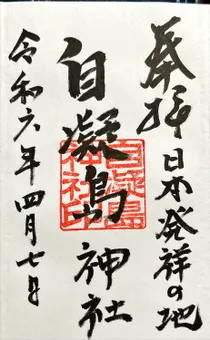 奉拝 日本発祥の地
自凝島神社
自凝島神社印
令和六年四月七日